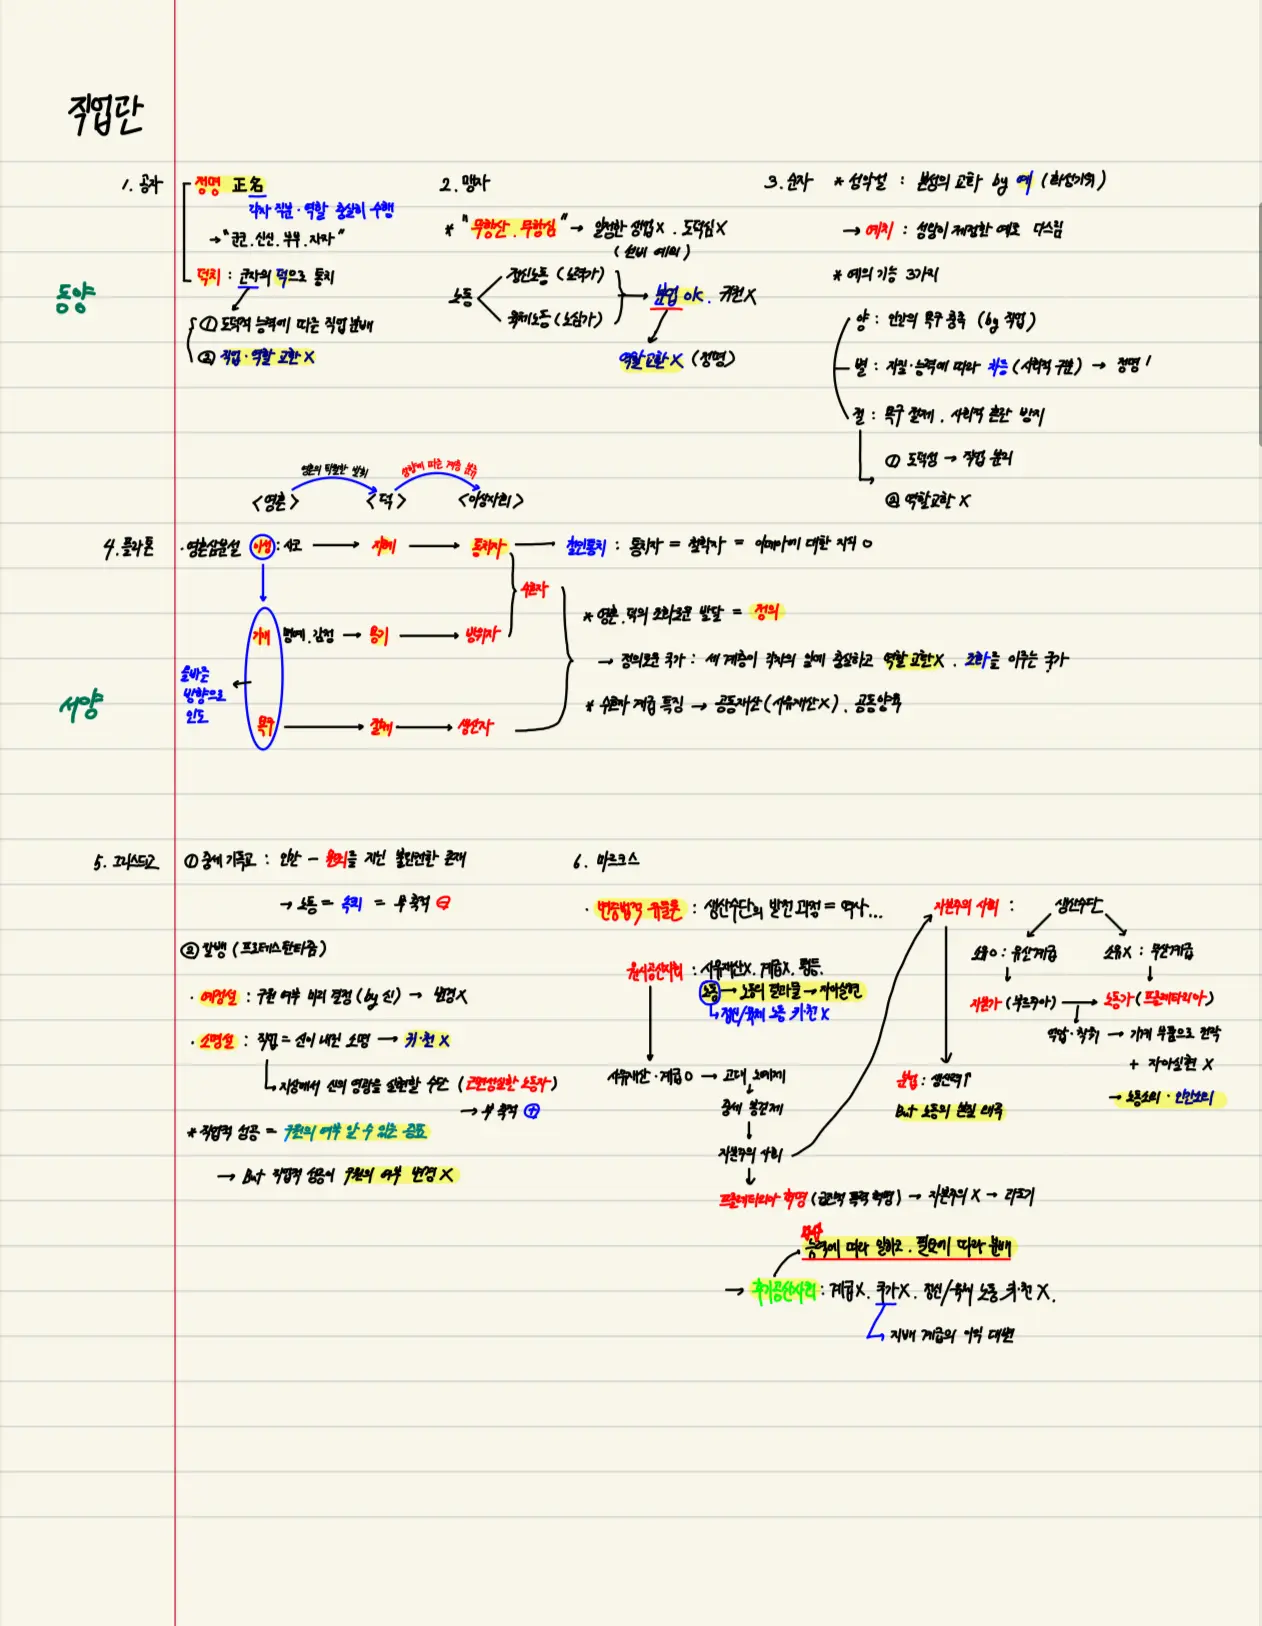 직업관
동양
1. 공자
정명 正名
각자 직분·역할 충실히 수행
→ "군군, 신신, 부부, 자자"
덕치 : 군자의 덕으로 통치
① 도덕적 능력에 따른 직업 분배
② 직업·역할 교환 X
2. 맹자
* "무항산, 무항심" → 일정한 생업X, 도덕심X
(선비 예외)
노동
정신노동 (노력가)
육체노동 (노심가)
→ 분업 OK, 귀천X
역할교환 X (정명)
3. 순자
* 성악설 : 본성의 교화 by 예 (화성기위)
→ 예치 : 성인이 제정한 예로 다스림
* 예의 기능 3가지
양 : 인간의 욕구 충족 (by 직업)
별 : 자질·능력에 따라 차등 (사회적 구분) → 정명!
절 : 욕구 절제, 사회적 혼란 방지
① 도덕성 → 직업 분리
② 역할교환 X
서양
영혼의 탁월한 발휘
성향에 따른 계층 분류
<영혼> <덕> <이상사회>
4. 플라톤
·영혼삼분설 이성 : 사고 → 지혜 → 통치자 — 철인통치 : 통치자 = 철학자 = 이데아에 대한 지식 O
수호자
기개 명예, 감정 → 용기 → 방위자
올바른
방향으로
인도
욕구 → 절제 → 생산자
* 영혼, 덕의 조화로운 발달 = 정의
→ 정의로운 국가 : 세 계층이 각자의 일에 충실하고 역할 교환X, 조화를 이루는 국가
* 수호자 계급 특징 → 공동재산 (사유재산X), 공동양육
5. 그리스도교
① 중세 기독교 : 인간 - 원죄를 지닌 불완전한 존재
→ 노동 = 속죄 = 부 축적 ⊖
② 칼뱅 (프로테스탄티즘)
· 예정설 : 구원 여부 미리 결정 (by 신) → 변경X
· 소명설 : 직업 = 신이 내린 소명 → 귀·천 X
지상에서 신의 영광을 실현할 수단 (근면성실한 노동자)
→ 부 축적 ⊕
* 직업적 성공 = 구원의 여부 알 수 있는 증표
→ But 직업적 성공이 구원의 여부 변경 X
6. 마르크스
· 변증법적 유물론 : 생산수단의 발전 과정 = 역사...
원시공산사회 : 사유재산X, 계급X, 평등,
노동 → 노동의 결과물 → 자아실현
정신/육체 노동 귀·천 X
사유재산·계급 O → 고대 노예제
중세 봉건제
자본주의 사회
프롤레타리아 혁명 (급진적 폭력 혁명) → 자본주의 X → 과도기
능력에 따라 일하고, 필요에 따라 분배
→ 후기공산사회 : 계급X, 국가X, 정신/육체 노동 귀·천 X,
지배 계급의 이익 대변
자본주의 사회 :
생산수단
소유O : 유산계급
소유X : 무산계급
자본가 (부르주아) → 노동자 (프롤레타리아)
억압·착취 → 기계 부품으로 전락
+ 자아실현 X
→ 노동소외·인간소외
분업 : 생산력↑
But 노동의 본질 왜곡